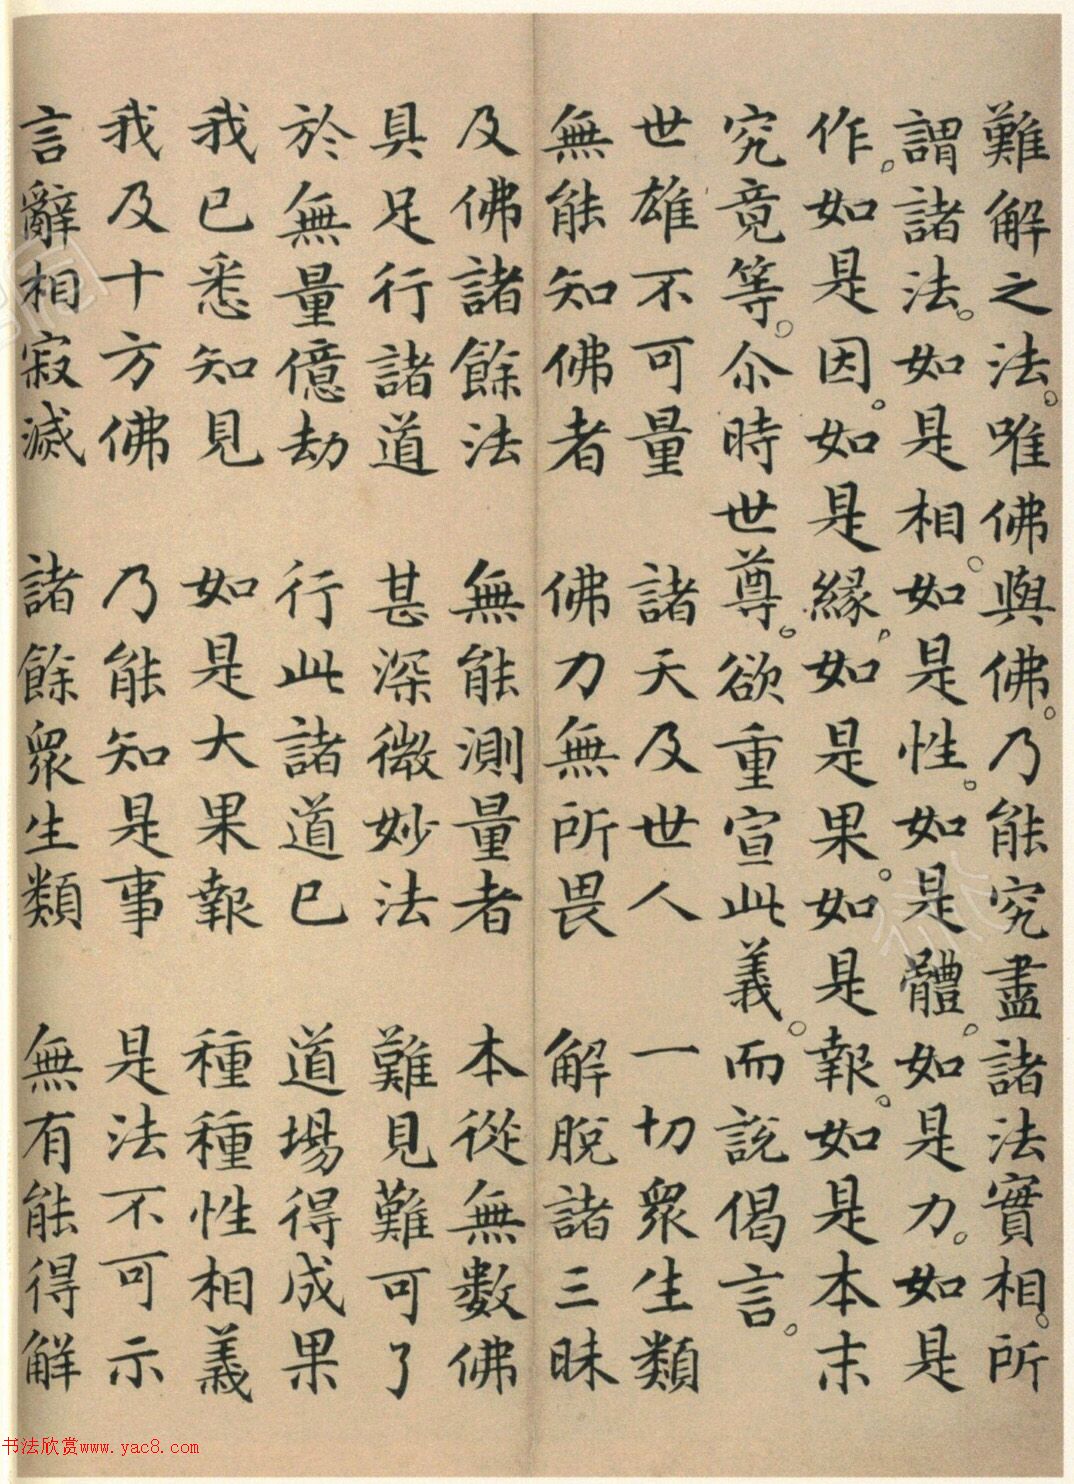 難解之法。唯佛與佛。乃能究盡諸法實相。所
謂諸法。如是相。如是性。如是體。如是力。如是
作。如是因。如是緣。如是果。如是報。如是本末
究竟等。尒時世尊。欲重宣此義。而說偈言。
世雄不可量 諸天及世人 一切眾生類
無能知佛者 佛力無所畏 解脫諸三昧
及佛諸餘法 無能測量者 本從無數佛
具足行諸道 甚深微妙法 難見難可了
於無量億劫 行此諸道已 道場得成果
我已悉知見 如是大果報 種種性相義
我及十方佛 乃能知是事 是法不可示
言辭相寂滅 諸餘眾生類 無有能得解
书法欣赏www.yac8.com